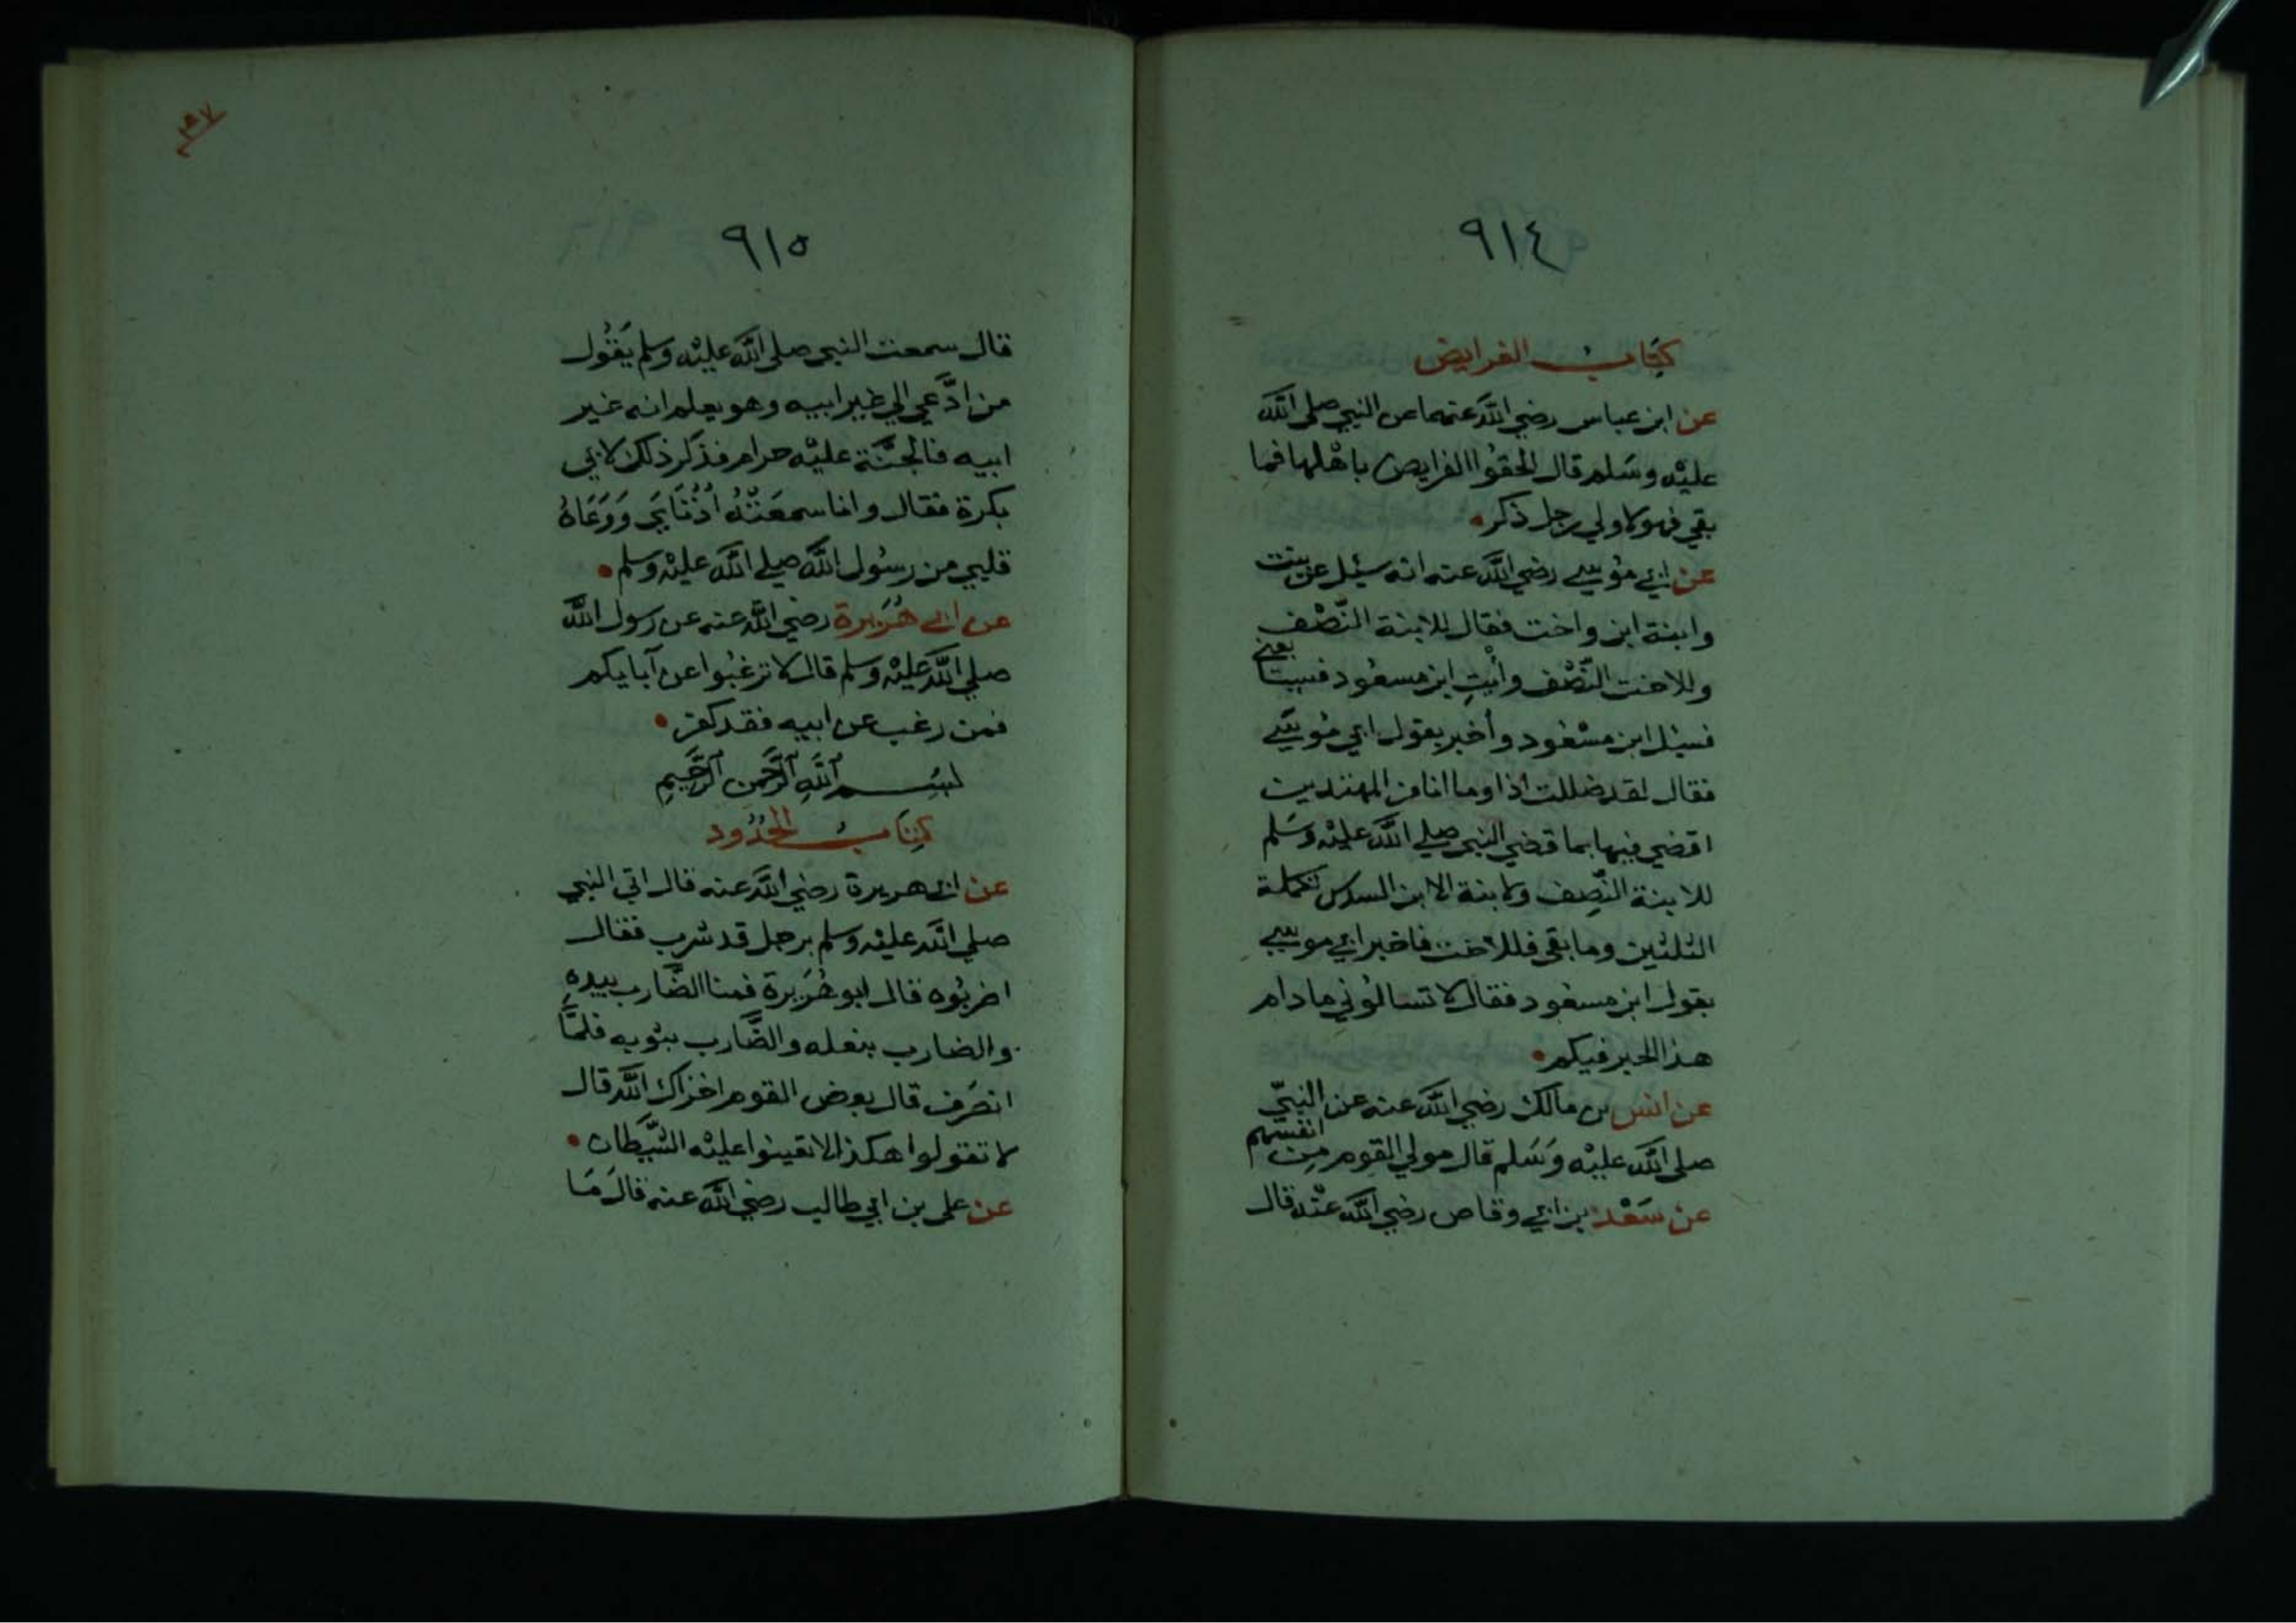 ٩١٤
كتاب الفرايض
عن ابن عباس رضي الله عنهما عن النبي صلى الله
عليه وسلم قال الحقوا الفرايض باهلها فما
بقي فهو لاولي رجل ذكر
عن ابي موسي رضي الله عنه انه سئل عن بنت
وابنة ابن واخت فقال للابنة النصف
وللاخت النصف وأت ابن مسعود فسيتا
بعني
فسئل ابن مسعود وأخبر بقول ابي موسي
فقال لقد ضللت اذا وما انا من المهتدين
اقضي فيها بما قضي النبي صلي الله عليه وسلم
للابنة النصف ولابنة الابن السدس تكملة
الثلثين وما بقي فللاخت فاخبر ابي موسي
بقول ابن مسعود فقال لا تسالوني ما دام
هذا الحبر فيكم
عن انس بن مالك رضي الله عنه عن النبي
صلى الله عليه وسلم قال مولي القوم من انفسهم
عن سعد بن ابي وقاص رضي الله عنه قال
٩١٥
قال سمعت النبي صلى الله عليه وسلم يقول
من ادعي الي غير ابيه وهو يعلم انه غير
ابيه فالجنة عليه حرام فذكر ذلك لابي
بكرة فقال وانا سمعته أذناي ووعاه
قلبي من رسول الله صلي الله عليه وسلم
عن ابي هريرة رضي الله عنه عن رسول الله
صلي الله عليه وسلم قال لا ترغبوا عن آبايكم
فمن رغب عن ابيه فقد كفر
بسم الله الرحمن الرحيم
كتاب الحدود
عن ابي هريرة رضي الله عنه قال اتي النبي
صلي الله عليه وسلم برجل قد شرب فقال
اضربوه قال ابو هريرة فمنا الضارب بيده
والضارب بنعله والضارب بثوبه فلما
انصرف قال بعض القوم اخزاك الله قال
لا تقولوا هكذا لا تعينوا عليه الشيطان
عن علي بن ابي طالب رضي الله عنه قال ما